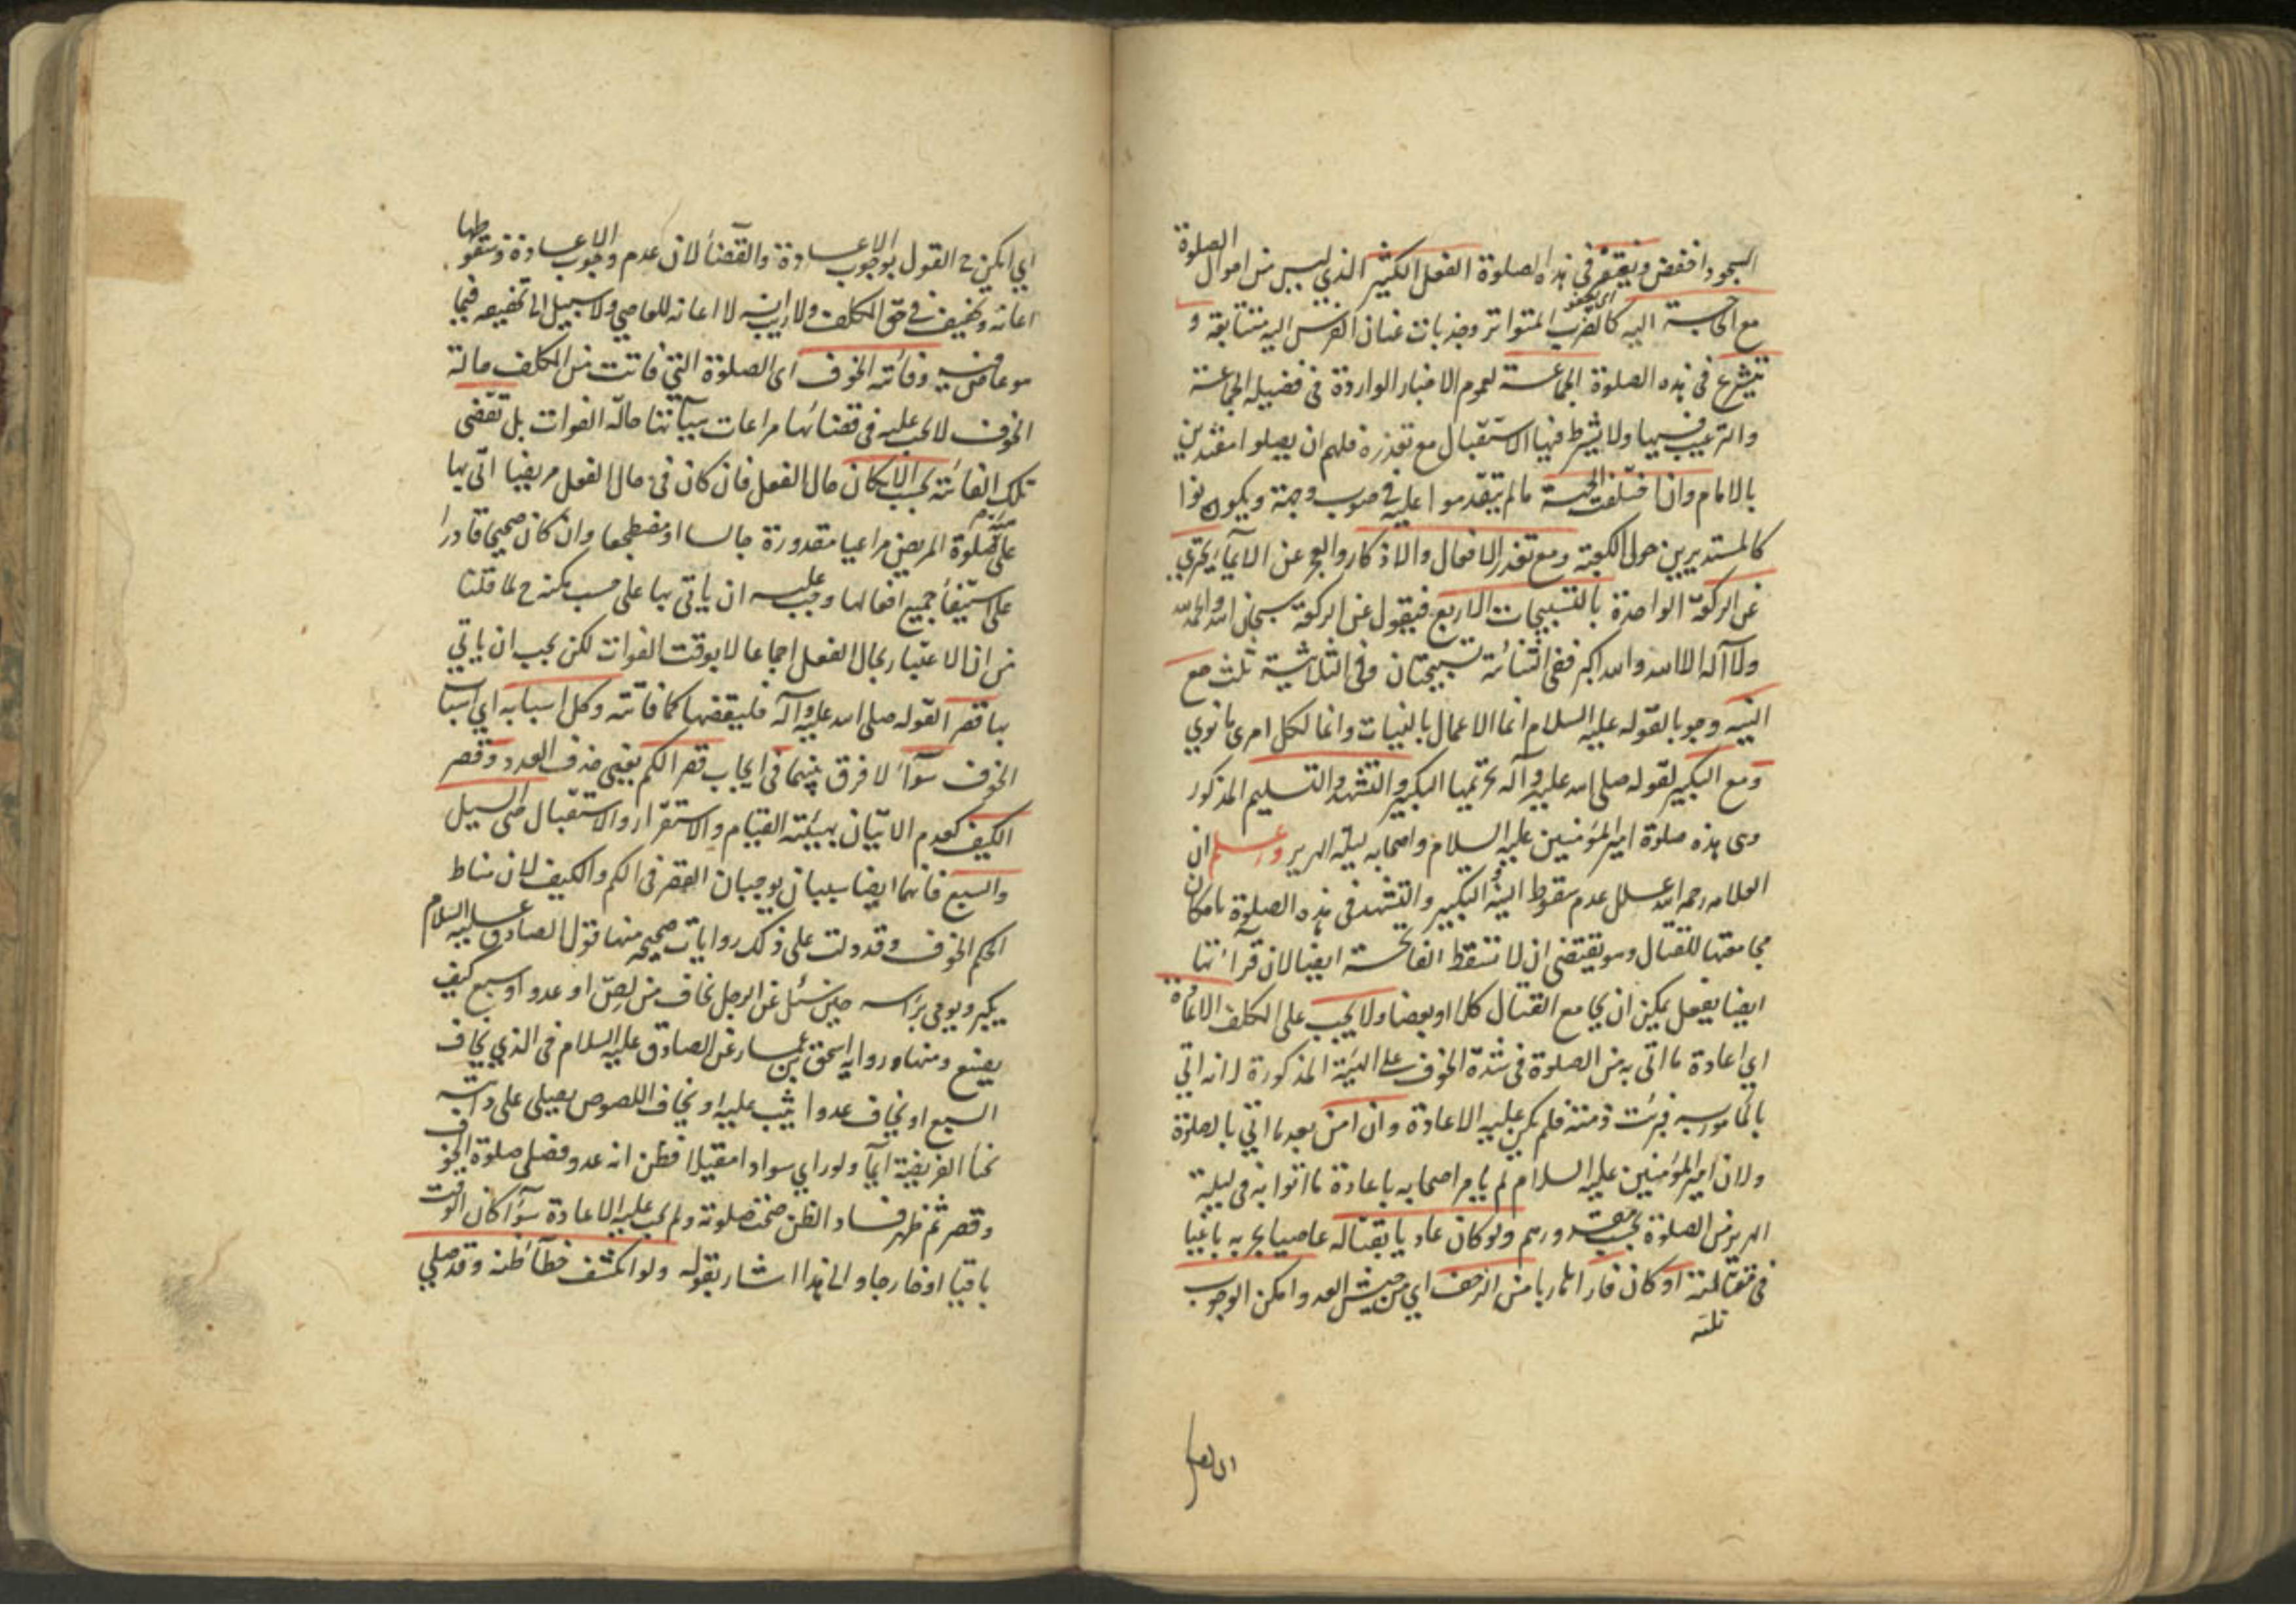 السجود اخفض ويغتفر في هذه الصلوة الفعل الكثير الذي ليس من احوال الصلوة
مع الحاجة اليه كالضرب المتواتر وجذبات عنان الفرس اليه متتابعة و
تشرع في هذه الصلوة الجماعة لعموم الاخبار الواردة في فضيلة الجماعة
والترغيب فيها ولا يشترط فيها الاستقبال مع تعذره فلهم ان يصلوا مقتدين
بالامام وان اختلفت الجهة ما لم يتقدموا عليه في صوب وجهة ويكونوا
كالمستديرين حول الكعبة ومع تعذر الافعال والاذكار والعجز عن الايماء يجتزي
عن الركعة الواحدة بالتسبيحات الاربع فيقول عن الركعة سبحان الله والحمد لله
ولا آله الا الله والله اكبر ففي الثنائية تسبيحتان وفي الثلاثية ثلث مع
النية وجوبا لقوله عليه السلام انما الاعمال بالنيات وانما لكل امرى ما نوي
ومع التكبير لقوله صلى الله عليه وآله تحريمها التكبير والتشهد والتسليم المذكور
وهى هذه صلوة امير المؤمنين عليه السلام واصحابه ليلة الهرير واعلم ان
العلامه رحمه الله علل عدم سقوط النية والتكبير والتشهد في هذه الصلوة بامكان
مجامعتها للقتال وهو يقتضى ان لا تسقط الفاتحة ايضا لان قرآئتها
ايضا يفعل يمكن ان يجامع القتال كلا او بعضا ولا يجب على المكلف الاعادة
اي اعادة ما اتى به من الصلوة في شدة الخوف على الهيئة المذكورة لانه اتي
بالمأمور به فبرئت ذمته فلم يكن عليه الاعادة وان امن بعد ما اتي بالصلوة
ولان امير المؤمنين عليه السلام لم يامر اصحابه باعادة ما اتوا به في ليلة
الهرير من الصلوة بحسب مقدورهم ولو كان عاديا بقتاله عاصيا بحربه باغيا
في مقاتلته او كان فارا هاربا من الزحف اي من جيش العدو امكن الوجوب
اي امكن ح القول بوجوب الاعادة والقضاء لان عدم وجوب الاعادة وسقوطها
اعانة وتخفيف في حق المكلف ولا ريب انه لا اعانه للعاصي ولا سبيل الى تخفيفه فيما
هو عاص فيه وفائتة الخوف اى الصلوة التي فاتت من المكلف حالة
الخوف لا يجب عليه في قضائها مراعات هيآتها حالة الفوات بل تقضى
تلك الفائتة بحسب الامكان حال الفعل فان كان في حال الفعل مريضا اتى بها
على صلوة المريض مراعيا مقدوره جالسا او مضطجعا وان كان صحيحا قادرا
على استيفاء جميع افعالها وجب عليه ان ياتى بها على حسب مكنته ح لما قلنا
من ان الاعتبار بحال الفعل اجماعا لا بوقت الفوات لكن يجب ان ياتي
بها قصرا لقوله صلى الله عليه وآله فليقضها كما فاتته وكل اسبابه اي اسباب
الخوف سوآء لا فرق بينها في ايجاب قصر الكم يعني حذف العدد وقصر
الكيف كعدم الاتيان بهيئة القيام والاستقرار والاستقبال حتى السيل
والسبع فانهما ايضا سببان يوجبان القصر في الكم والكيف لان مناط
الحكم الخوف وقد دلت على ذلك روايات صحيحه منها قول الصادق عليه السلام
يكبر ويومى براسه حين سئل عن الرجل يخاف من لص او عدو او سبع كيف
يصنع ومنها رواية اسحق بن عمار عن الصادق عليه السلام في الذي يخاف
السبع او يخاف عدوا يثب عليه او يخاف اللصوص يصلى على دابته
ايمآء الفريضة ولو راي سوادا مقبلا فظن انه عدو فصلى صلوة الخوف
وقصر ثم ظهر فساد الظن صحت صلوته ولم يجب عليه الاعادة سوآء كان الوقت
باقيا او خارجا والى هذا اشار بقوله ولو انكشف خطآء ظنه وقد صلي